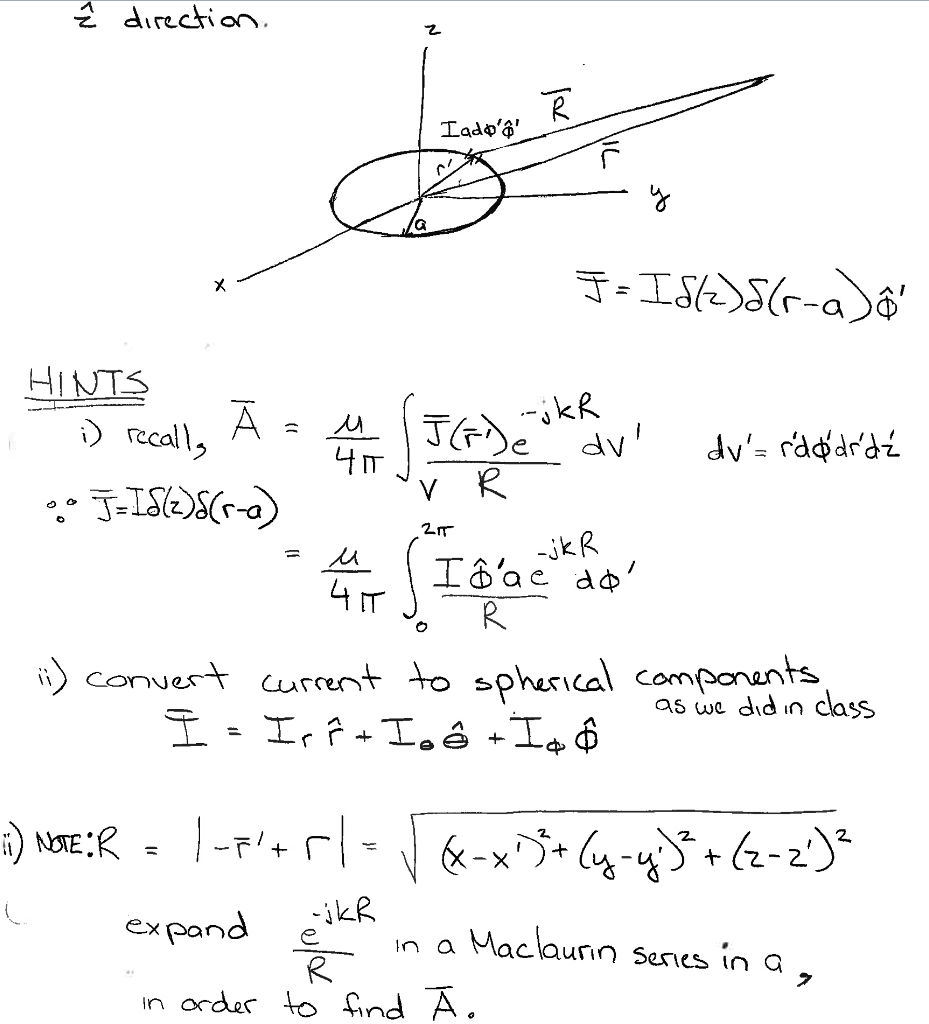 ẑ direction.
z
R̄
Iadφ'φ̂'
r'
r̄
y
a
x
J̄ = Iδ(z)δ(r-a)φ̂'
HINTS
i) recall, Ā = μ/4π ∫_V J̄(r̄')e^{-jkR}/R dv' dv' = r'dφ'dr'dz'
∵ J̄=Iδ(z)δ(r-a)
= μ/4π ∫_0^{2π} Iφ̂'ae^{-jkR}/R dφ'
ii) convert current to spherical components
as we did in class
Ī = I_r r̂ + I_θ θ̂ + I_φ φ̂
ii) NOTE: R = |-r̄' + r| = √((x-x')² + (y-y')² + (z-z')²)
expand e^{-jkR}/R in a Maclaurin series in a,
in order to find Ā.